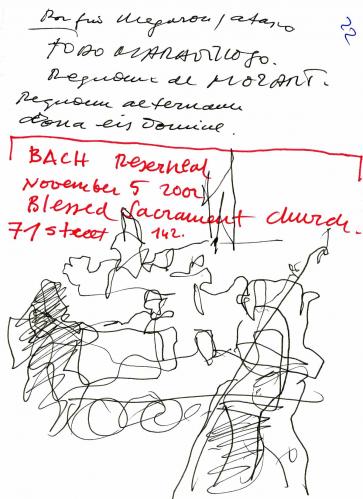 Por fin Megaron / atasco
22
TODO MARAVILLOSO.
Requiem de MOZART.
Requiem aeternam
dona eis Domine.
BACH Reserheal
November 5 2001
Blessed Sacrament church.
71 street 142.